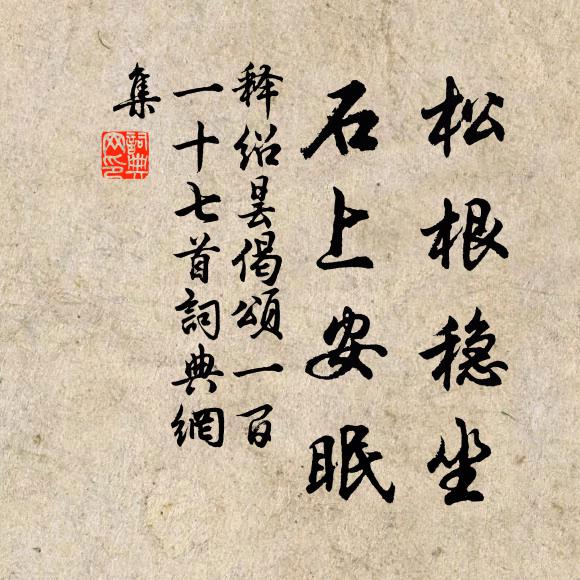 松根稳坐
石上安眠
释绍昙偈颂一百
一十七首詞典網
集
詞典
网印